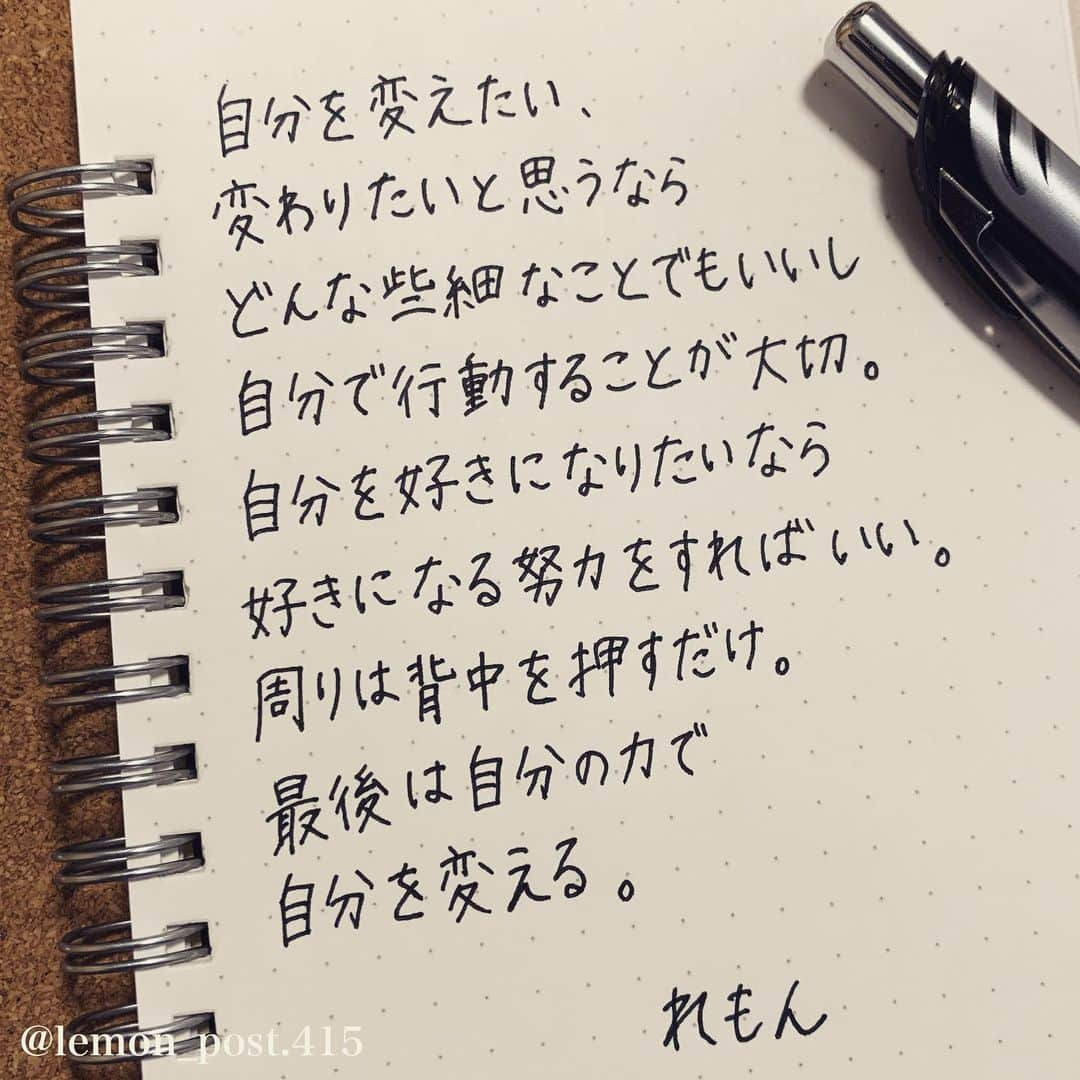 自分を変えたい、
変わりたいと思うなら
どんな些細なことでもいいし
自分で行動することが大切。
自分を好きになりたいなら
好きになる努力をすればいい。
周りは背中を押すだけ。
最後は自分の力で
自分を変える。
れもん
@lemon_post.415